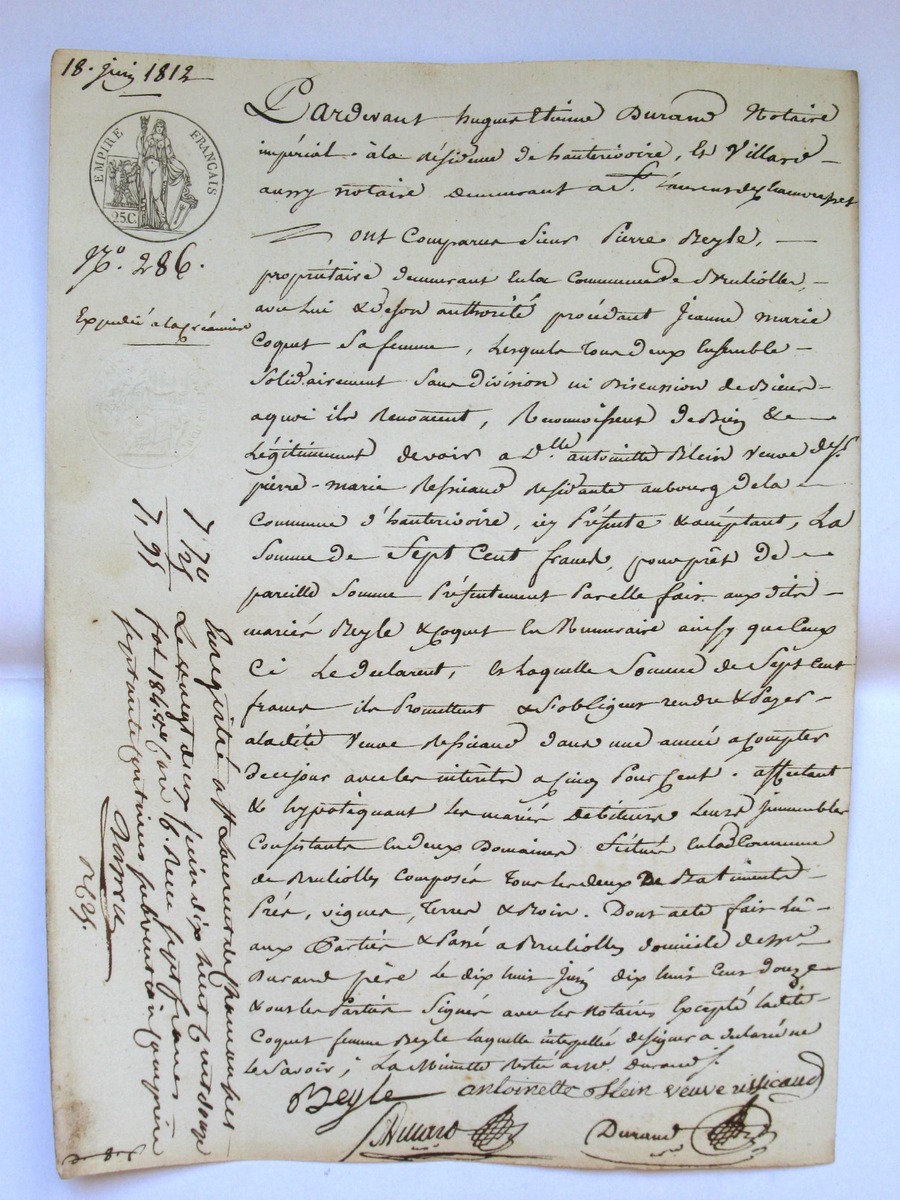 18. juin 1812
EMPIRE FRANÇAIS
25 C.
N.° 286.
Expédié à la créancière
Pardevant hugues Etienne Durand Notaire
impérial à la Résidence de hauterivoire, Et Villard
aussy notaire demeurant a St. Laurent de Chamousset
ont Comparus Sieur Pierre Beyle,
propriétaire demeurant En la Commune de Bruliolles,
avec lui & de son authorité procédant Jeanne marie
Coquet Sa femme, Lesquels Tous deux Ensemble
Solidairement Sans division ni Discussion de Biens
aquoi ils Renoncent, Reconnoissent de Bien &
Légitimement devoir a D.lle antoinette Blein Veuve de Sr.
pierre-marie Ressicaud Résidante au bourg de la
Commune d'hauterivoire, icy Présente & acceptant, La
Somme de Sept Cent francs, pour prêt de
pareille Somme Présentement Par elle fait aux dits
mariés Beyle & Coquet En Numeraire ainsy que Ceux
Ci Le déclarent, Et Laquelle Somme de Sept Cent
francs ils Promettent & S'obligent rendre & Payer
a ladite Veuve Ressicaud dans une année a compter
de ce jour avec les intérêts a Cinq Pour Cent. affectant
& hypotéquant les mariés Debiteurs Leurs jmmeubles
Consistants En deux Domaines Situés En la d. Commune
de Bruliolles Composés Tous les deux De Batiments
Prés, vignes, Terres & Bois. Dont acte fait Lû
aux Parties & Passé a Bruliolles domicile de Mr.
Durand père Le dix huit Juin dix huit Cent Douze
& ont les Parties Signés avec les Notaires Excepté ladite
Coquet femme Beyle laquelle interpellée de signer a déclaré ne
le Savoir, La Minutte Restée a Mr. Durand
Beyle antoinette Blein veuve ressicaud
Villard Durand
Enregistré a St. Laurent de Chamousset
Le vingt deux juin dix huit Cent douze
fol. 184. V.° Case 6. Reçu sept francs
soixante dix centimes subvention comprise
7 70
7, 95